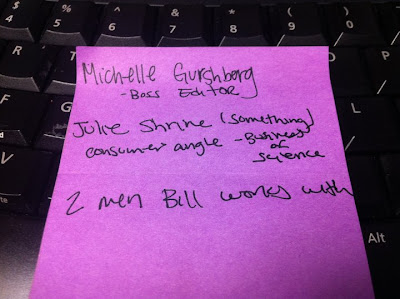 Michelle Gurshberg
- Boss Editor
Julie Shrine (something)
consumer angle - Business
of
science
2 men Bill works with
$ 4
% 5
6
7
8
9
0
P
V
Alt